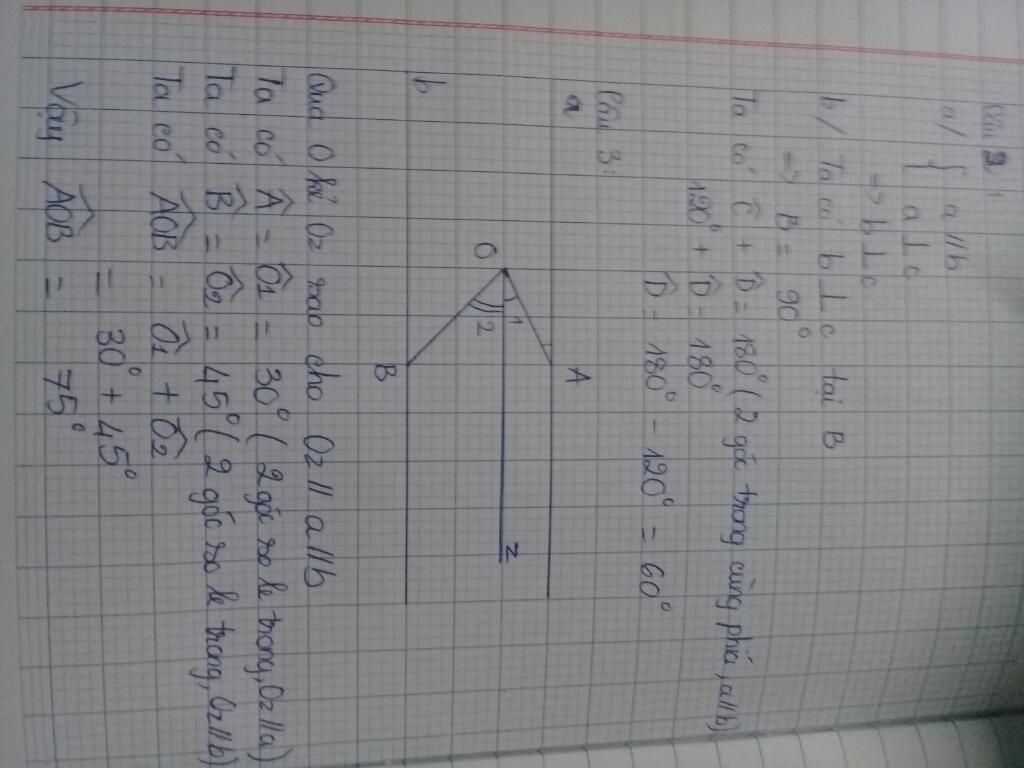 Câu 2:
a/ { a//b
a⊥c
=> b⊥c
b/ Ta có b⊥c tại B
=> B = 90°
Ta có Ĉ + D̂ = 180° (2 góc trong cùng phía, a//b)
120° + D̂ = 180°
D̂ = 180° - 120° = 60°
Câu 3:
a
A
O
1
2
z
b
B
Qua O kẻ Oz sao cho Oz // a//b
Ta có Â = Ô1 = 30° (2 góc so le trong, Oz//a)
Ta có B̂ = Ô2 = 45° (2 góc so le trong, Oz//b)
Ta có AÔB = Ô1 + Ô2
= 30° + 45°
Vậy AÔB = 75°